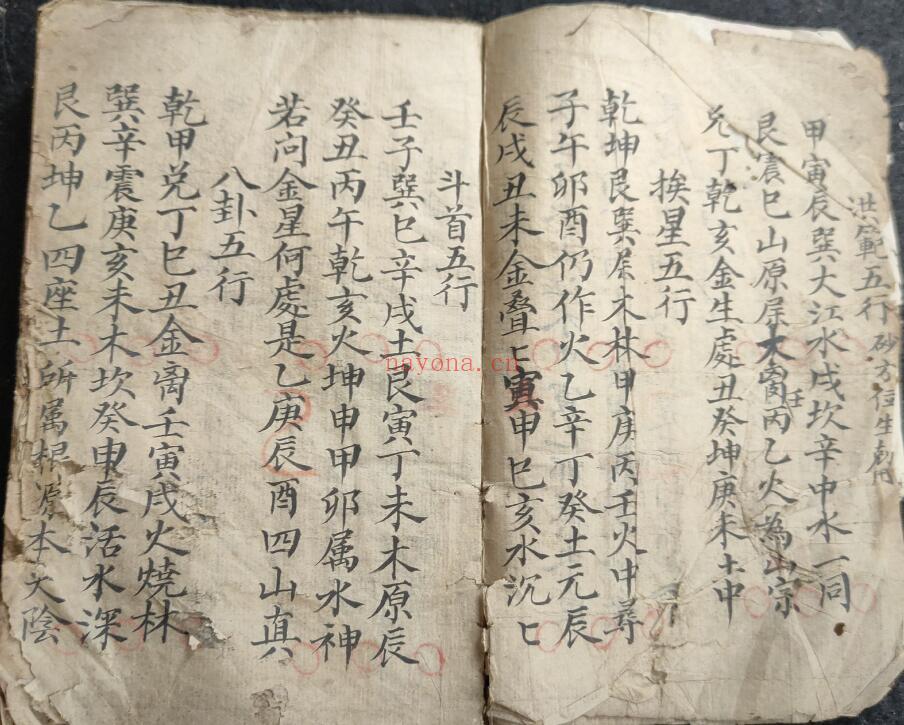 洪範五行 砂方位生剋
甲寅辰巽大江水戌坎辛申水一同
艮震巳山原屬木离壬丙乙火為山宗
兌丁乾亥金生處丑癸坤庚未土中
挨星五行
乾坤艮巽屬木林甲庚丙壬火中尋
子午卯酉仍作火乙辛丁癸土元辰
辰戌丑未金叠〻寅申巳亥水沉〻
斗首五行
壬子巽巳辛戌土艮寅丁未木原辰
癸丑丙午乾亥火坤申甲卯属水神
若问金星何處是乙庚辰酉四山真
八卦五行
乾甲兌丁巳丑金离壬寅戌火燒林
巽辛震庚亥未木坎癸申辰活水深
艮丙坤乙四座土所属根源本大陰
nayona.cn